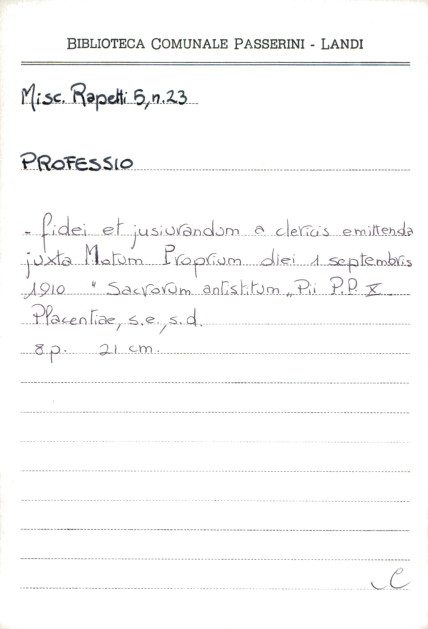 BIBLIOTECA COMUNALE PASSERINI - LANDI
Misc. Rapetti 5, n.23
PROFESSIO
- fidei et jusiurandum a clericis emittenda
juxta Motum Proprium diei 1 septembris
1910 " Sacrorum antistitum „ Pii P.P. X
Placentiae, s.e., s.d.
8 p. 21 cm.